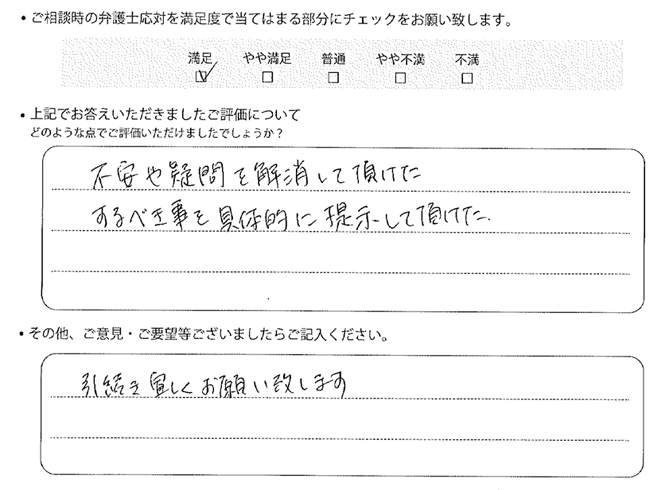 ・ご相談時の弁護士応対を満足度で当てはまる部分にチェックをお願い致します。
満足 やや満足 普通 やや不満 不満
☑ □ □ □ □
・上記でお答えいただきましたご評価について
どのような点でご評価いただけましたでしょうか?
不安や疑問を解消して頂けた
するべき事を具体的に提示して頂けた.
・その他、ご意見・ご要望等ございましたらご記入ください。
引続き宜しくお願い致します